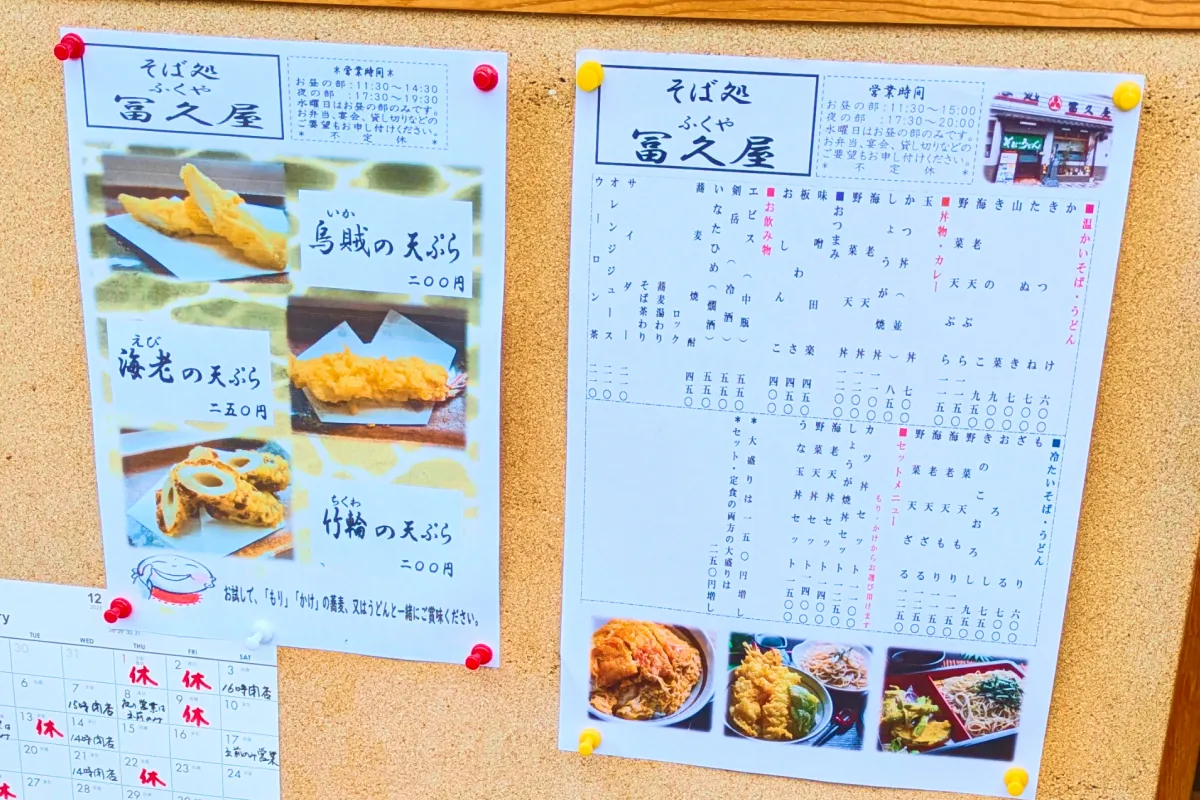 そば処
ふくや
冨久屋
＊営業時間＊
お昼の部：11:30～14:30
夜の部　：17:30～19:30
水曜日はお昼の部のみです。
お弁当、宴会、貸し切りなどの
ご要望もお申し付けください。
＊　不　定　休　＊
いか
烏賊の天ぷら
二〇〇円
えび
海老の天ぷら
二五〇円
ちくわ
竹輪の天ぷら
二〇〇円
お試しで、「もり」「かけ」の蕎麦、又はうどんと一緒にご賞味ください。
そば処
ふくや
冨久屋
営業時間
お昼の部：11:30～15:00
夜の部　：17:30～20:00
水曜日はお昼の部のみです。
お弁当、宴会、貸し切りなどの
ご要望もお申し付けください。
＊　不　定　休　＊
冨久屋
■温かいそば・うどん
かけ 六〇〇
きつね 七〇〇
たぬき 七〇〇
山菜 九〇〇
きのこ 九五〇
海老天ぷら 一一五〇
野菜天ぷら 一一五〇
■丼物・カレー
玉丼 七〇〇
かつ丼（並） 八五〇
しょうが焼丼
海老天丼
野菜天丼
■おつまみ
味噌田楽 四五〇
板わさ 四五〇
おしんこ 四〇〇
■お飲み物
エビス（中瓶） 五五〇
剣岳（冷酒） 五五〇
いなたひめ（燗酒） 五五〇
蕎麦焼酎 四五〇
ロック
蕎麦湯わり
そば茶わり
サイダー 二二〇
オレンジジュース 二二〇
ウーロン茶 二二〇
■冷たいそば・うどん
もり 六〇〇
ざる 七〇〇
おろし 七五〇
きのこおろし 九五〇
野菜天もり
海老天もり
野菜天ざる
海老天ざる
■セットメニュー
もり・かけからお選び頂けます
カツ丼セット
しょうが焼丼セット
海老天丼セット
野菜天丼セット
うな玉丼セット
＊大盛りは一五〇円増し
＊セット・定食の両方の大盛りは
二五〇円増し
12
TUE WED THU FRI SAT
30 31 1 休 2 休 3 16時閉店
6 7 15時閉店 8 9 休 10
13 休 14 14時閉店 15 16 17
20 21 14時閉店 22 休 23 24
27 28 29